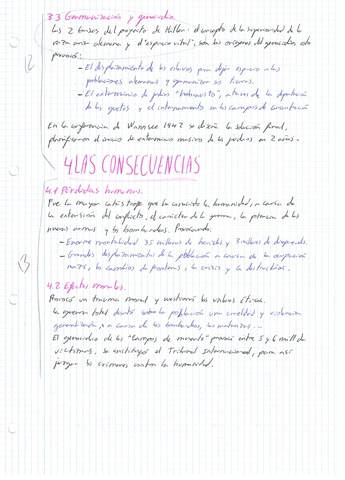 3.3 Germanización y genocidio.
Las 2 bases del proyecto de Hitler: el concepto de la superioridad de la
raza aria alemana y el "espacio vital", son los orígenes del genocidio, esto
provocó:
- El desplazamiento de los eslavos para dejar espacio a las
poblaciones alemanas y germanizar sus tierras.
- El exterminio de judíos "holocausto", a través de la deportación
de los guetos y el internamiento en los campos de concentración
En la conferencia de Wannsee 1942 se diseñó la solución final,
planificaron el inicio de exterminio masivo de los judíos en 2 años.
4 LAS CONSECUENCIAS
4.1 Pérdidas humanas.
Fue la mayor catástrofe que ha conocido la humanidad, a causa de
la extensión del conflicto, el carácter de la guerra, la potencia de las
nuevas armas y los bombardeos. Provocando:
- Enorme mortalidad 35 millones de heridos y 3 millones de desaparecidos.
- Grandes desplazamientos de la población a causa de la ocupación
nazi, los cambios de fronteras, la crisis y la destrucción.
4.2 Efectos morales.
Provocó un trauma moral y los valores éticos.
La guerra total sobre la población una crueldad y violencia
generalizada, a causa de los bombardeos, las matanzas...
El genocidio de los "campos de muerte" provocó entre 5 y 6 mill de
víctimas. Se constituyó el Tribunal Internacional, para así
juzgar los crímenes contra la humanidad.